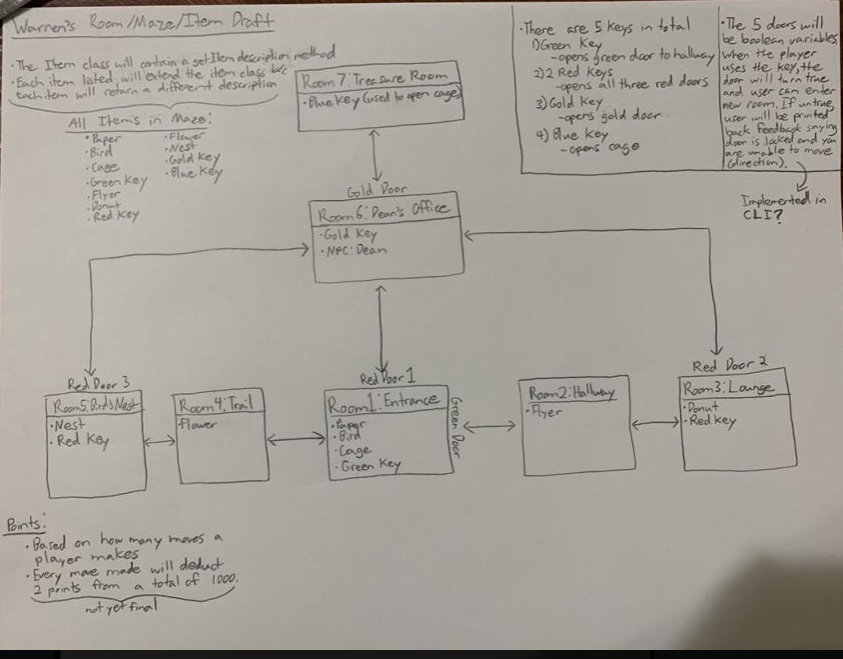 Warren's Room/Maze/Item Draft
•The Item class will contain a getItem description method
•Each item listed will extend the item class b/c
each item will return a different description
All Items in Maze:
•Paper
•Bird
•Cage
•Green Key
•Flyer
•Donut
•Red Key
•Flower
•Nest
•Gold Key
•Blue Key
•There are 5 keys in total
1)Green Key
-opens green door to hallway
2)2 Red Keys
-opens all three red doors
3)Gold Key
-opens gold door
4)Blue Key
-opens cage
•The 5 doors will
be boolean variables
when the player
uses the key, the
door will turn true
and user can enter
new room. If untrue,
user will be printed
back feedback saying
door is locked and you
are unable to move
(direction).
Implemented in
CLI?
Room 7: Treasure Room
•Blue Key (used to open cage)
Gold Door
Room 6: Dean's Office
•Gold Key
•NPC: Dean
Red Door 3
Room 5: Bird's Nest
•Nest
•Red Key
Room 4: Trail
Flower
Red Door 1
Room 1: Entrance
•Paper
•Bird
•Cage
•Green Key
Green Door
Room 2: Hallway
•Flyer
Red Door 2
Room 3: Lounge
•Donut
•Red Key
Points:
•Based on how many moves a
player makes
•Every move made will deduct
2 points from a total of 1000.
not yet final